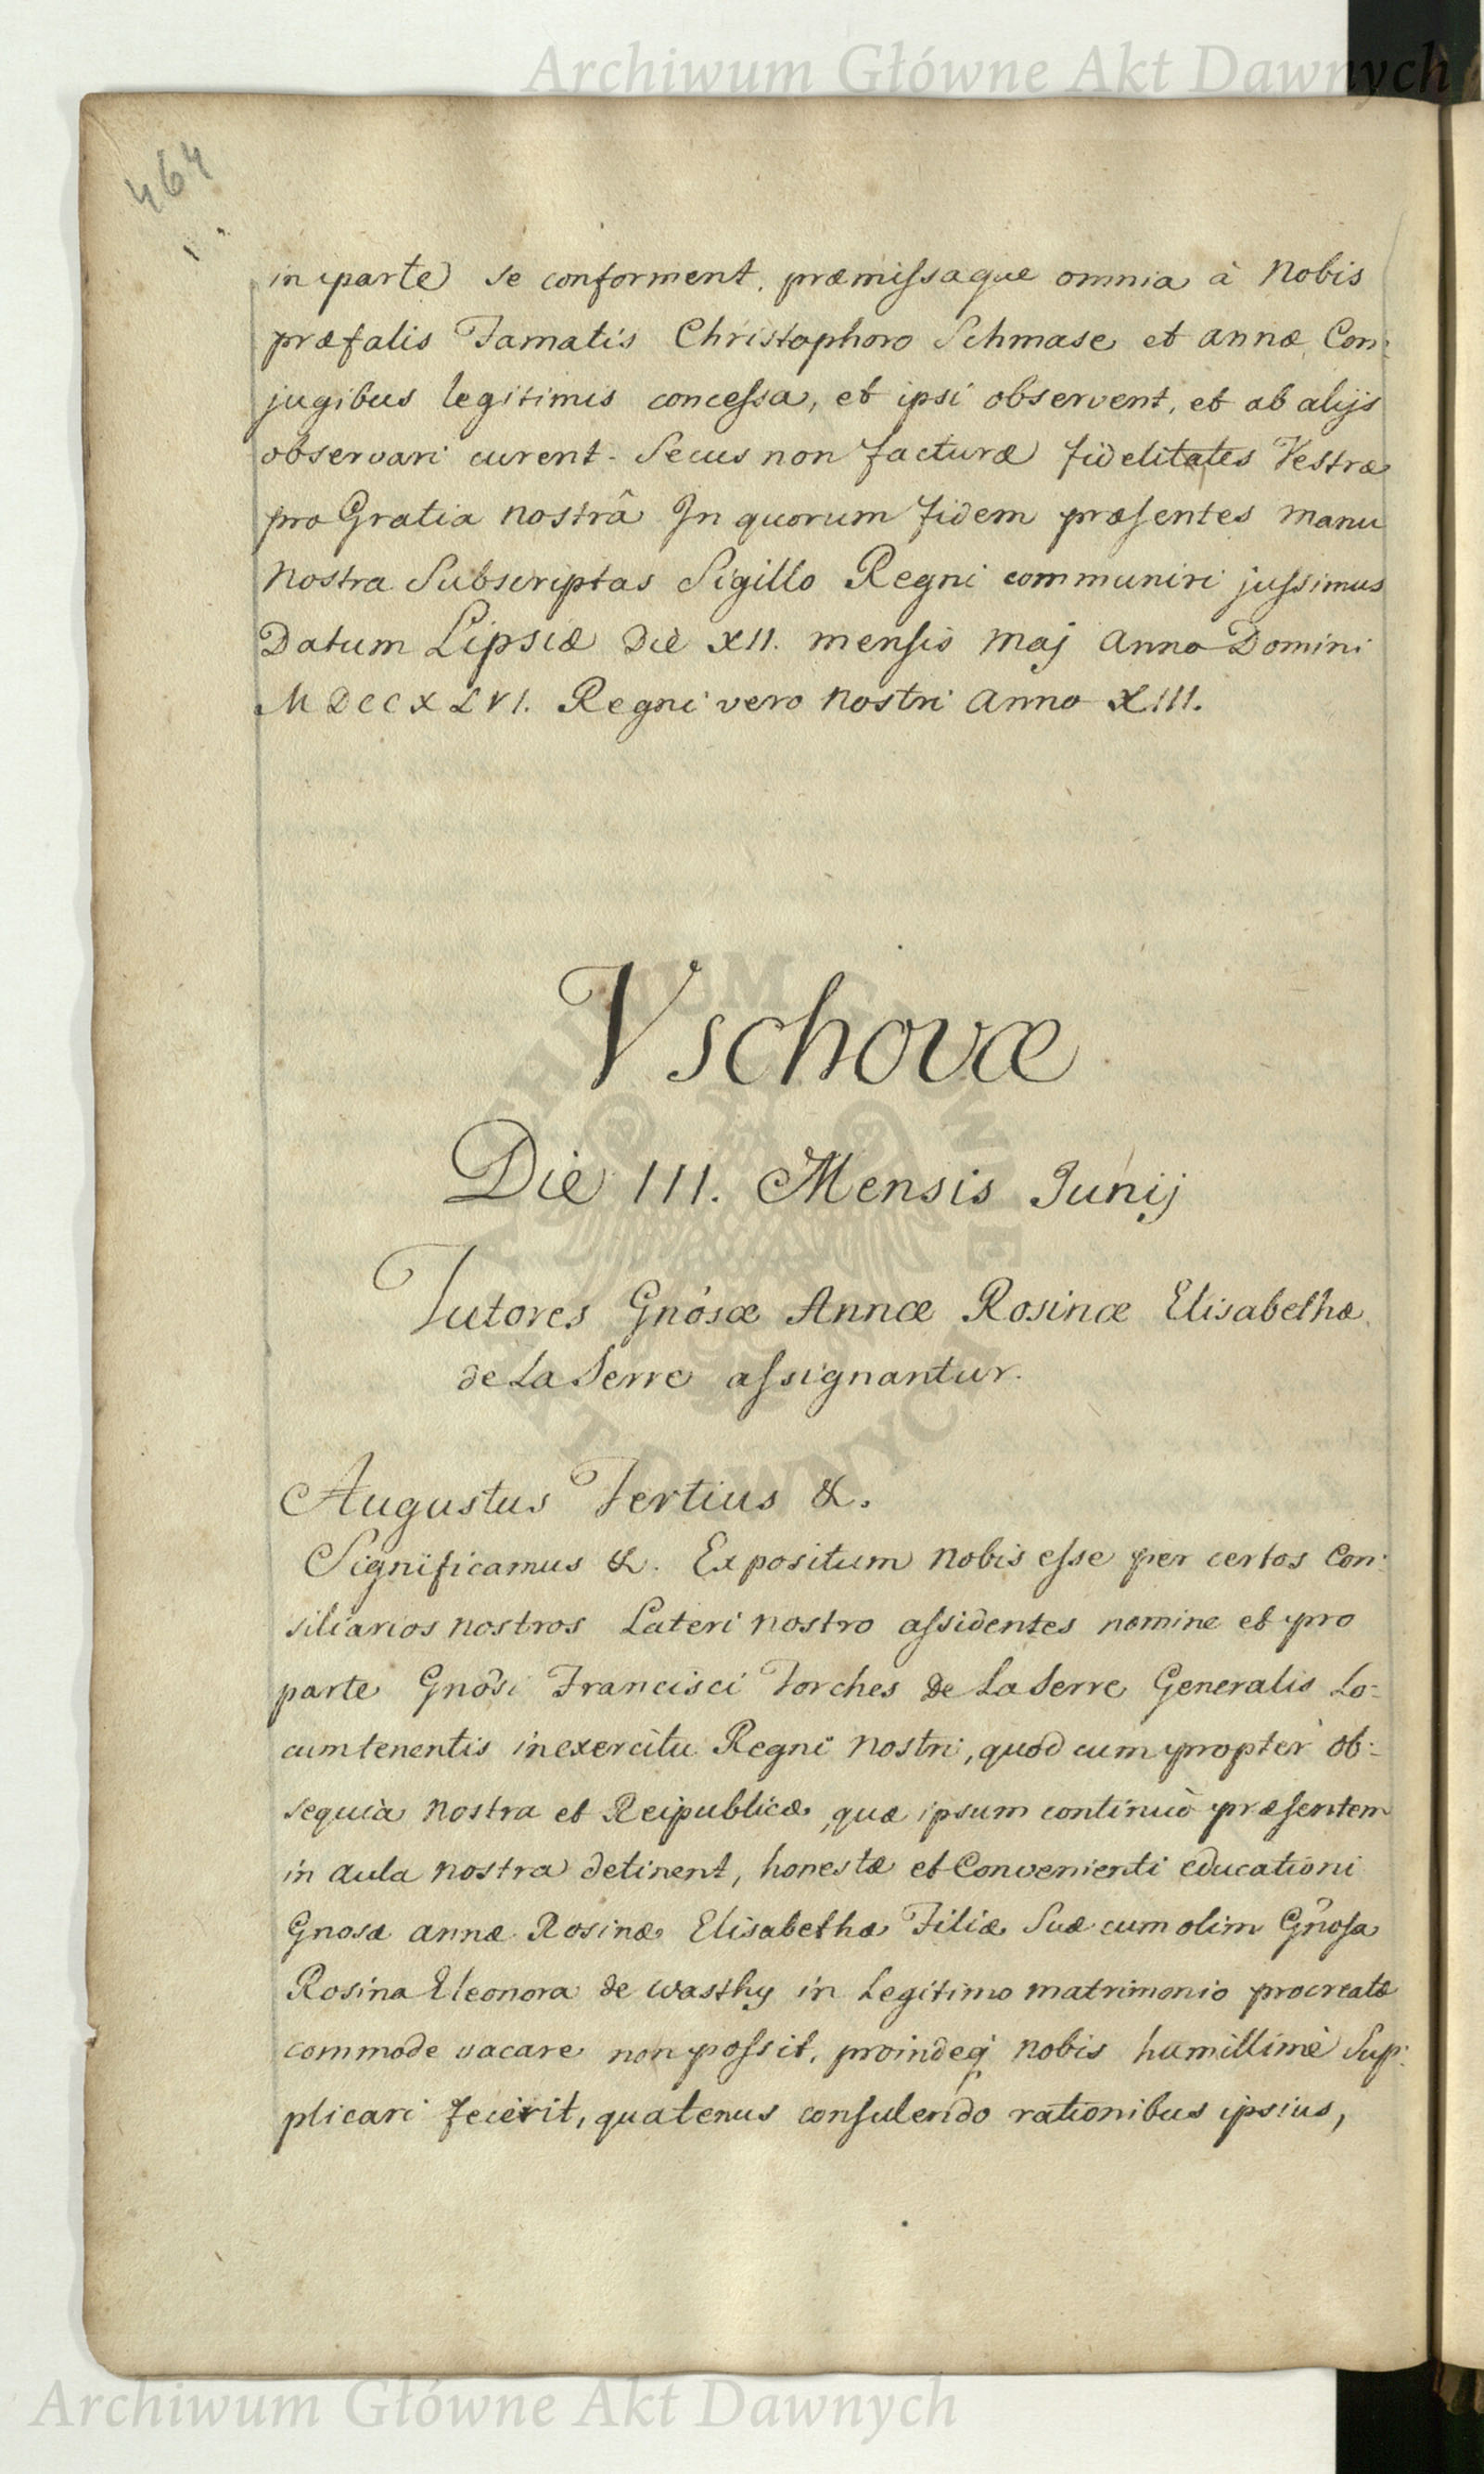 Archiwum Główne Akt Dawnych
464
in parte se conforment. præmissaque omnia à Nobis
præfalis Famatis Christophoro Schmase et annæ Con:
jugibus legitimis concessa, et ipsi observent, et ab alijs
observari curent. Secus non facturæ fidelitates Vestræ
pro Gratia nostrâ In quorum fidem præsentes manu
Nostra Subscriptas Sigillo Regni communiri jussimus
Datum Lipsiæ Die XII. mensis Maj Anno Domini
MDCCXLVI. Regni vero Nostri Anno XIII.
Vschovæ
Die III. Mensis Junij
Tutores Gnósæ Annæ Rosinæ Elisabethæ
de La Serre assignantur.
Augustus Tertius &.
Significamus &. Expositum Nobis esse per certos Con:
siliarios nostros Lateri nostro assidentes nomine et pro
parte Gnósi Francisci Torches de La Serre Generalis Lo=
cumtenentis in exercitu Regni Nostri, quod cum propter ob:
sequia Nostra et Reipublicæ, quæ ipsum continuò præsentem
in aula nostra detinent, honestæ et Convenienti educationi
Gnosæ annæ Rosinæ Elisabethæ Filiæ Suæ cum olim Gnosa
Rosina Eleonora de Wasthy in Legitimo matrimonio procreatæ
commode vacare non possit, proindeq nobis humillimè Sup:
plicari fecerit, quatenus consulendo rationibus ipsius,
ARCHIWUM GŁÓWNE AKT DAWNYCH
Archiwum Główne Akt Dawnych